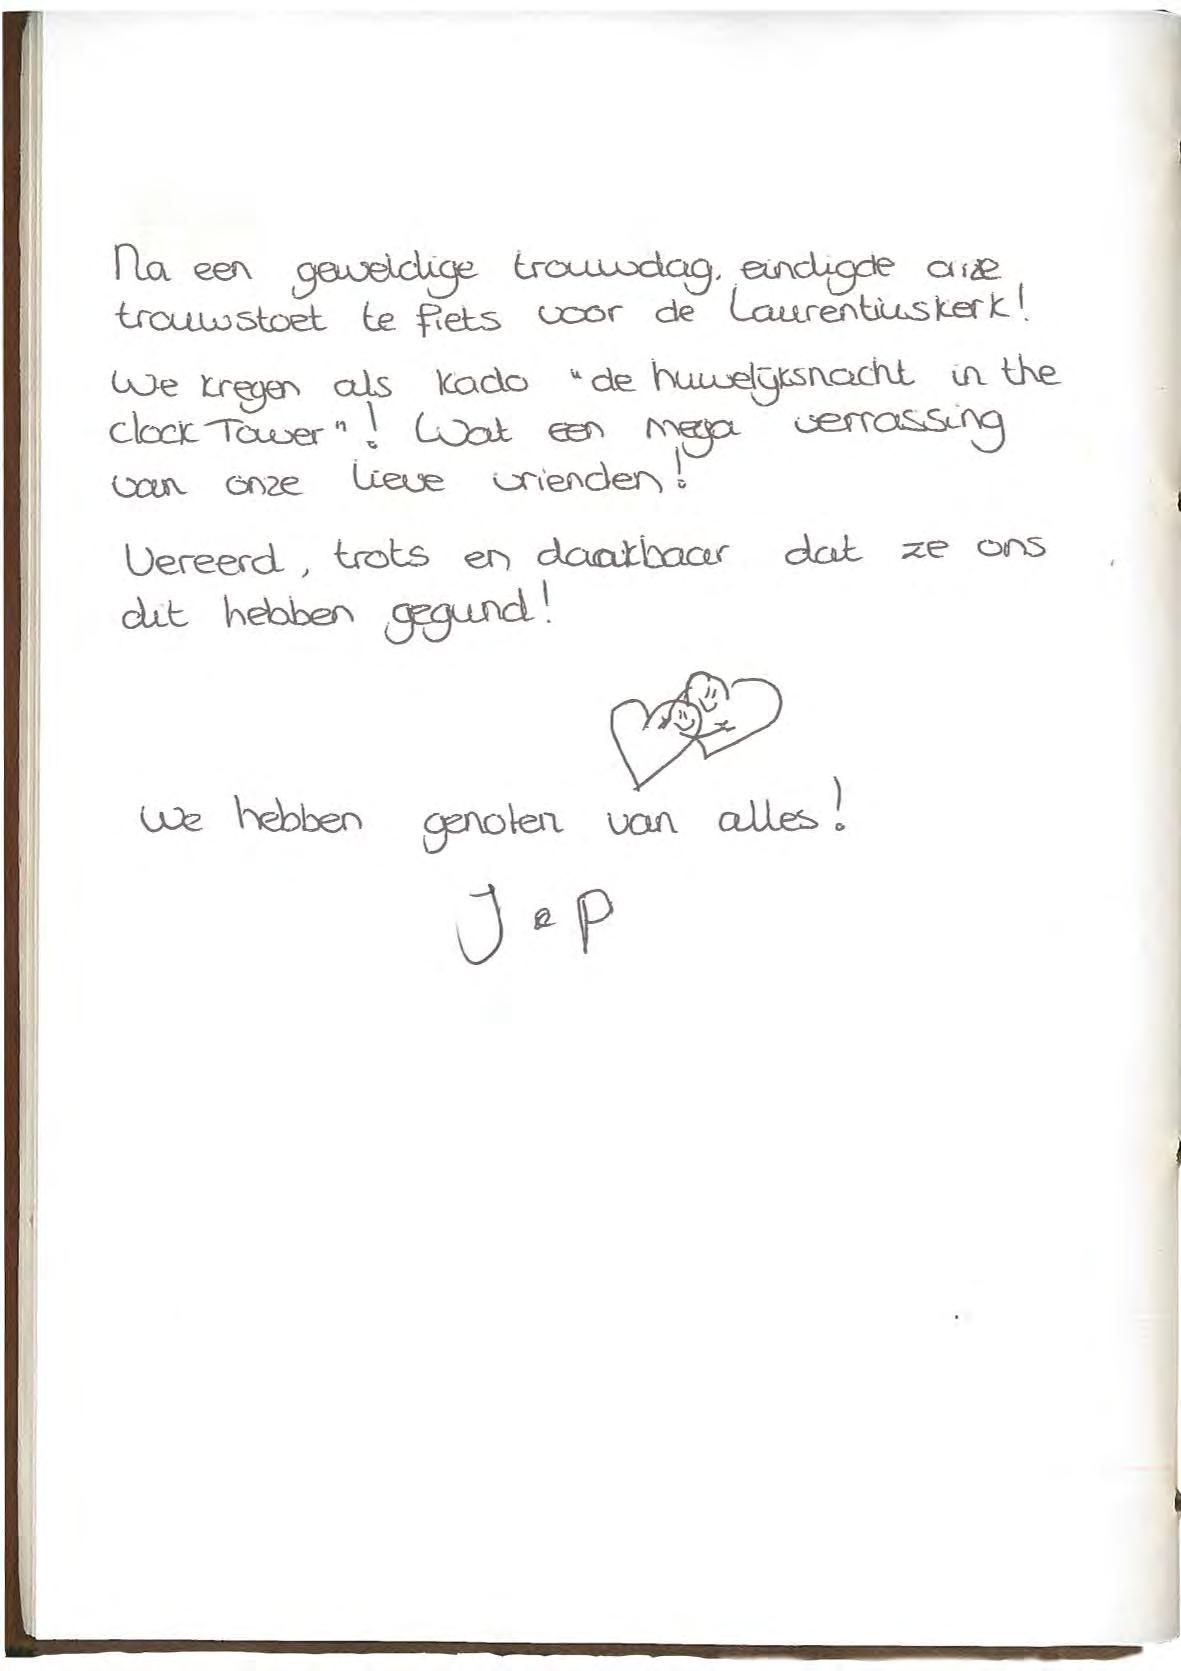 Na een geweldige trouwdag, eindigde onze
trouwstoet te fiets voor de Laurentiuskerk!
We kregen als kado "de huwelijksnacht in the
clock Tower"! Wat een mega verrassing
van onze lieve vrienden!
Vereerd, trots en dankbaar dat ze ons
dit hebben gegund!
We hebben genoten van alles!
J e P